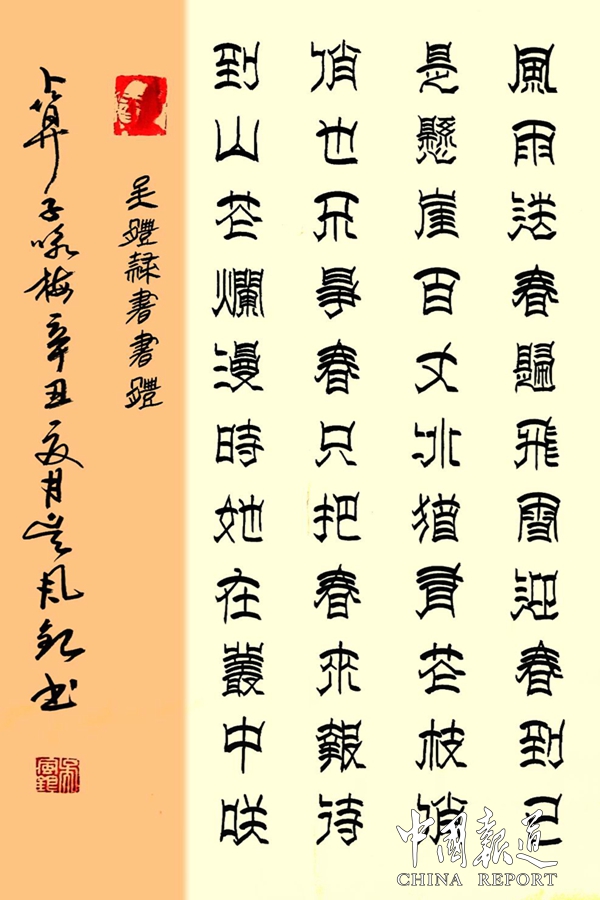 風雨送春歸飛雪迎春到已
是懸崖百丈冰猶有花枝俏
俏也不爭春只把春來報待
到山花爛漫時她在叢中咲
吴體隸書書體
卜算子咏梅辛丑夏月吴书
中国報道
CHINA REPORT